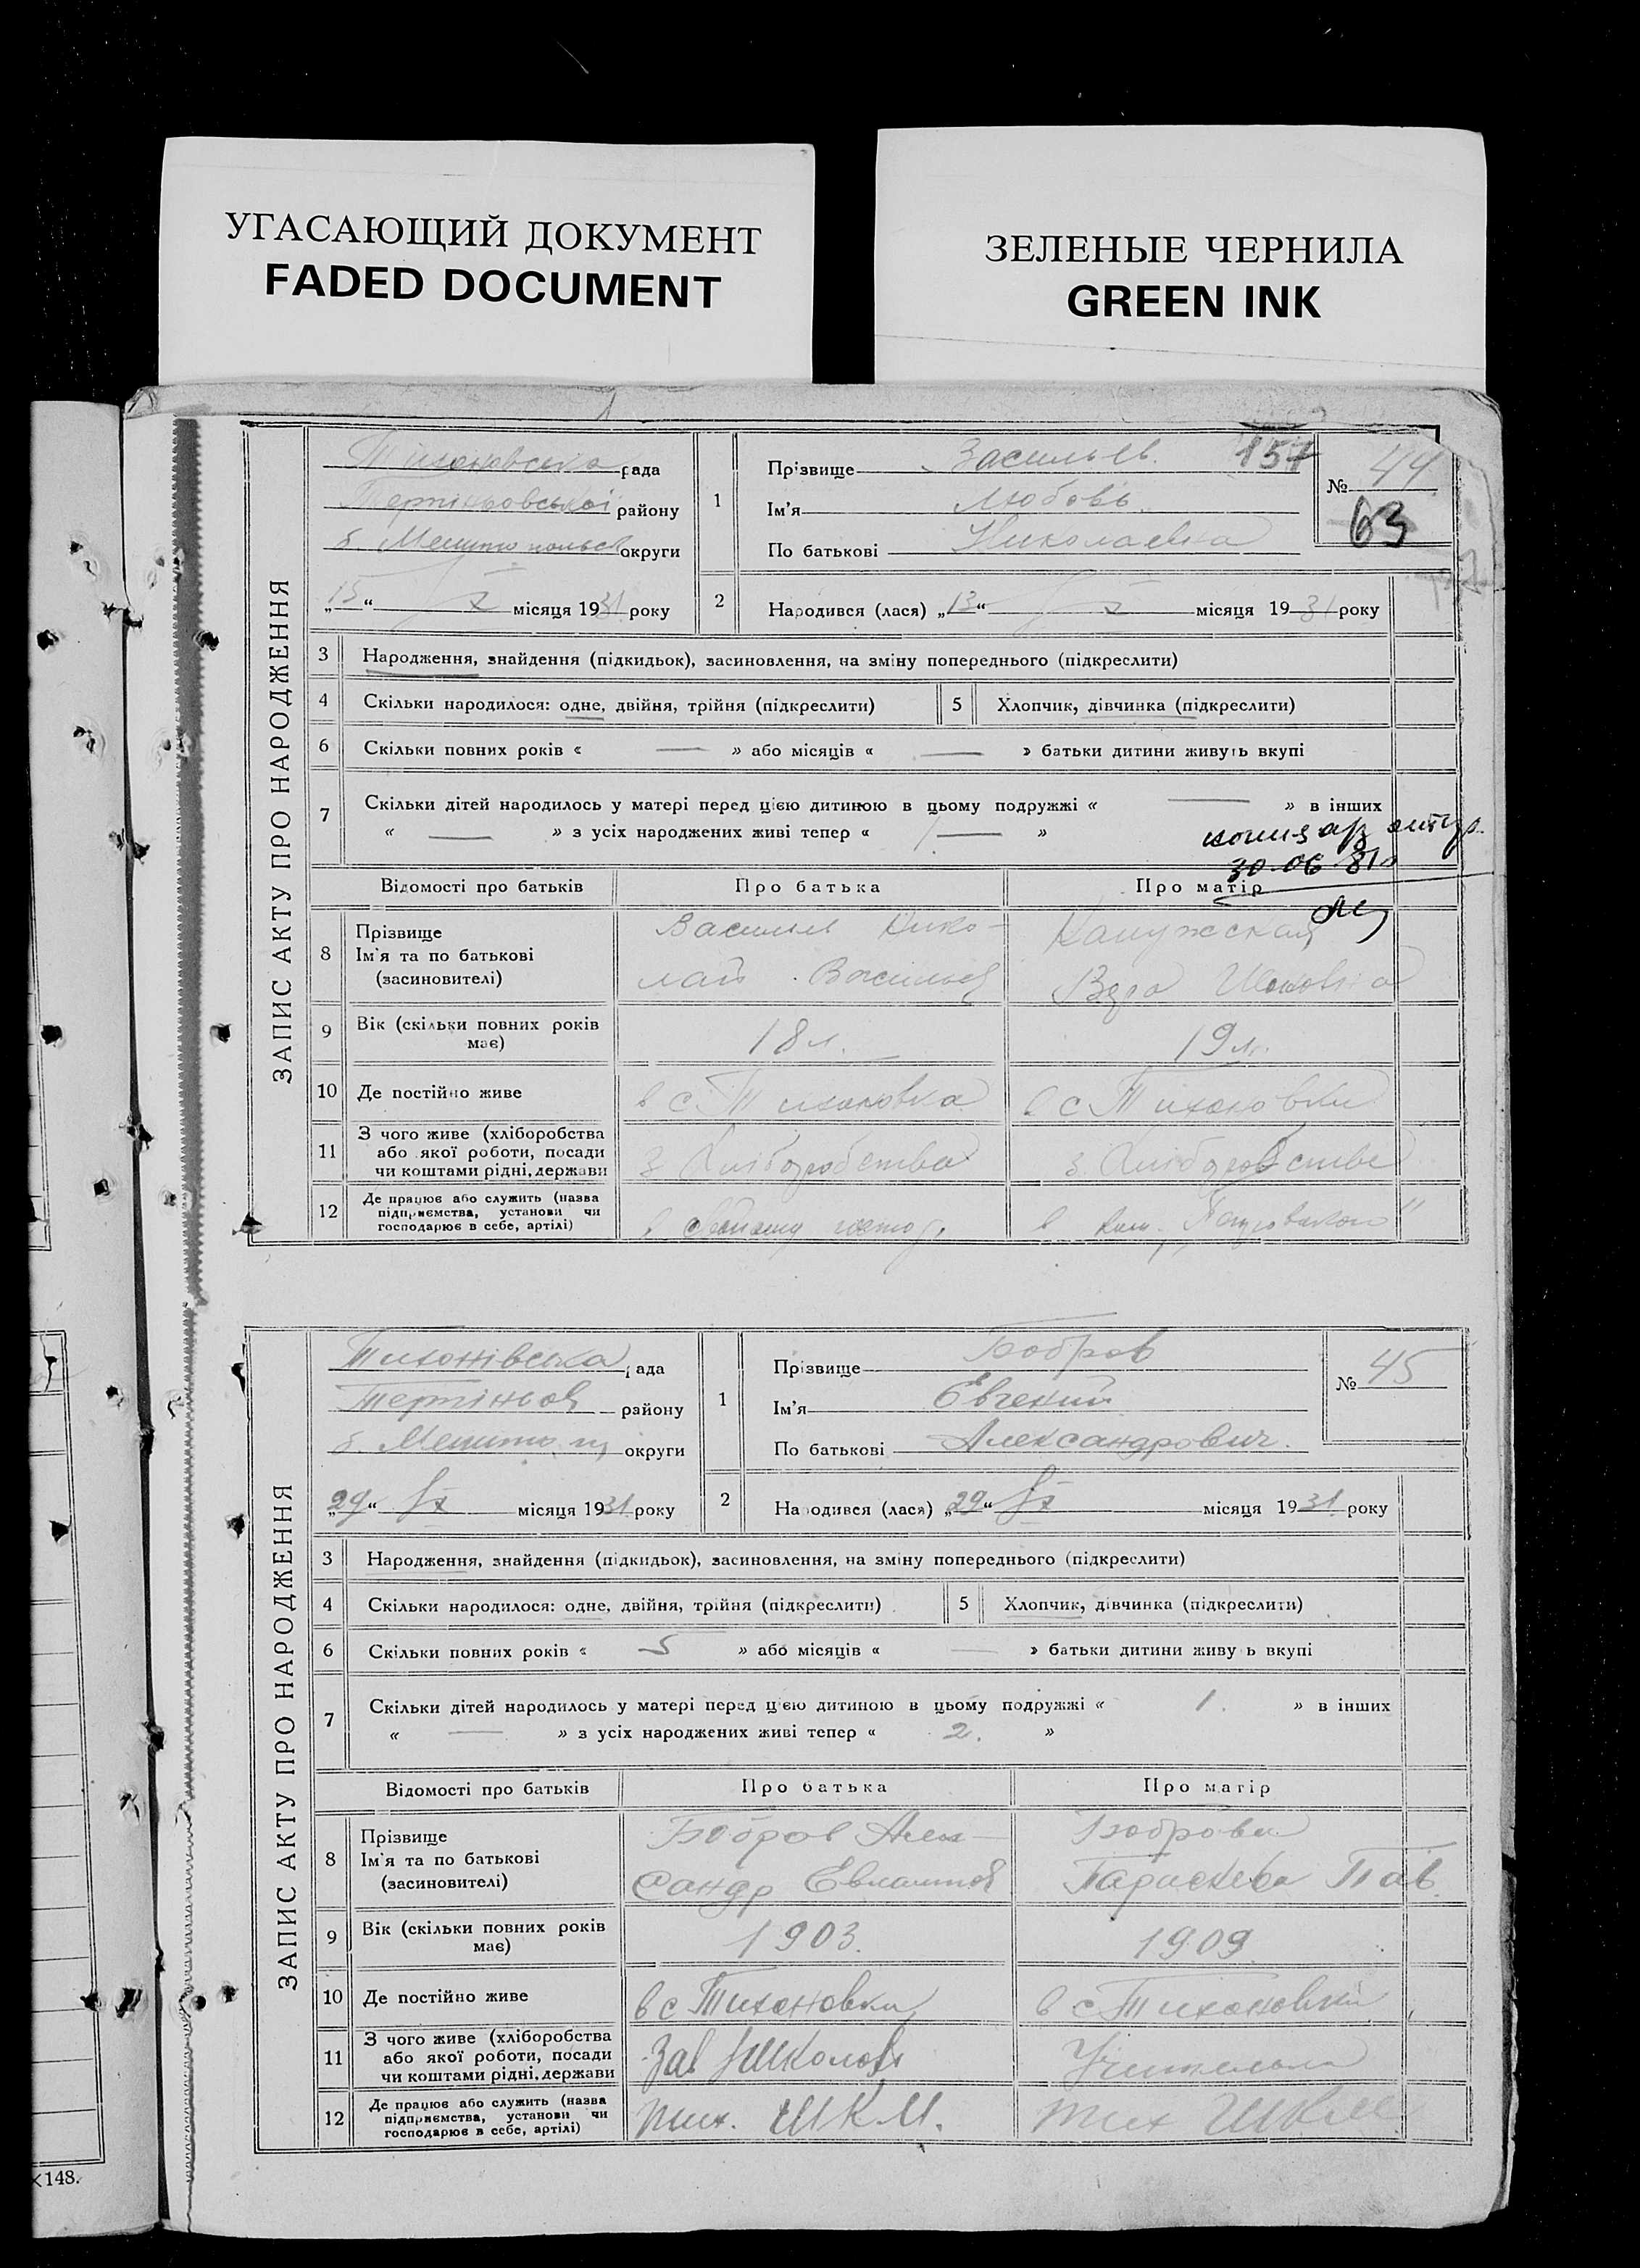 УГАСАЮЩИЙ ДОКУМЕНТ
FADED DOCUMENT
ЗЕЛЕНЫЕ ЧЕРНИЛА
GREEN INK
ЗАПИС АКТУ ПРО НАРОДЖЕННЯ
Тихоновська рада
району
б. округи
„15“ X місяця 1931 року
1
Прізвище
157
Ім'я Любовь
По батькові Николаевна
№ 44
63
2
Народився (лася) „13“ X місяця 1931 року
3 Народження, знайдення (підкидьок), засиновлення, на зміну попереднього (підкреслити)
4 Скільки народилося: одне, двійня, трійня (підкреслити) 5 Хлопчик, дівчинка (підкреслити)
6 Скільки повних років « — » або місяців « — » батьки дитини живуть вкупі
7 Скільки дітей народилось у матері перед цією дитиною в цьому подружжі « — » в інших
« — » з усіх народжених живі тепер « — »
30.06.81
Відомості про батьків Про батька Про матір
8 Прізвище
Ім'я та по батькові
(засиновителі)
Васильев Нико-
лай
Вера
9 Вік (скільки повних років має) 18 л. 19 л.
10 Де постійно живе в с. Тихоновка в с. Тихоновки
11 З чого живе (хліборобства
або якої роботи, посади
чи коштами рідні, держави
з Хліборобства з Хліборобства
12 Де працює або служить (назва
підприємства, установи чи
господарює в себе, артілі)
ЗАПИС АКТУ ПРО НАРОДЖЕННЯ
Тихонівська рада
району
б. округи
„29“ IX місяця 1931 року
1
Прізвище Бобров
Ім'я Евгений
По батькові Александрович
№ 45
2
Народився (лася) „29“ IX місяця 1931 року
3 Народження, знайдення (підкидьок), засиновлення, на зміну попереднього (підкреслити)
4 Скільки народилося: одне, двійня, трійня (підкреслити) 5 Хлопчик, дівчинка (підкреслити)
6 Скільки повних років « 5 » або місяців « — » батьки дитини живуть вкупі
7 Скільки дітей народилось у матері перед цією дитиною в цьому подружжі « 1. » в інших
« — » з усіх народжених живі тепер « 2. »
Відомості про батьків Про батька Про матір
8 Прізвище
Ім'я та по батькові
(засиновителі)
Бобров Алек-
сандр
Боброва
Параскева Пав
9 Вік (скільки повних років має) 1903. 1909
10 Де постійно живе в с Тихоновки в с Тихоновки
11 З чого живе (хліборобства
або якої роботи, посади
чи коштами рідні, держави
Зав Школой
12 Де працює або служить (назва
підприємства, установи чи
господарює в себе, артілі)
тих. ШКМ. тих ШКМ
148.